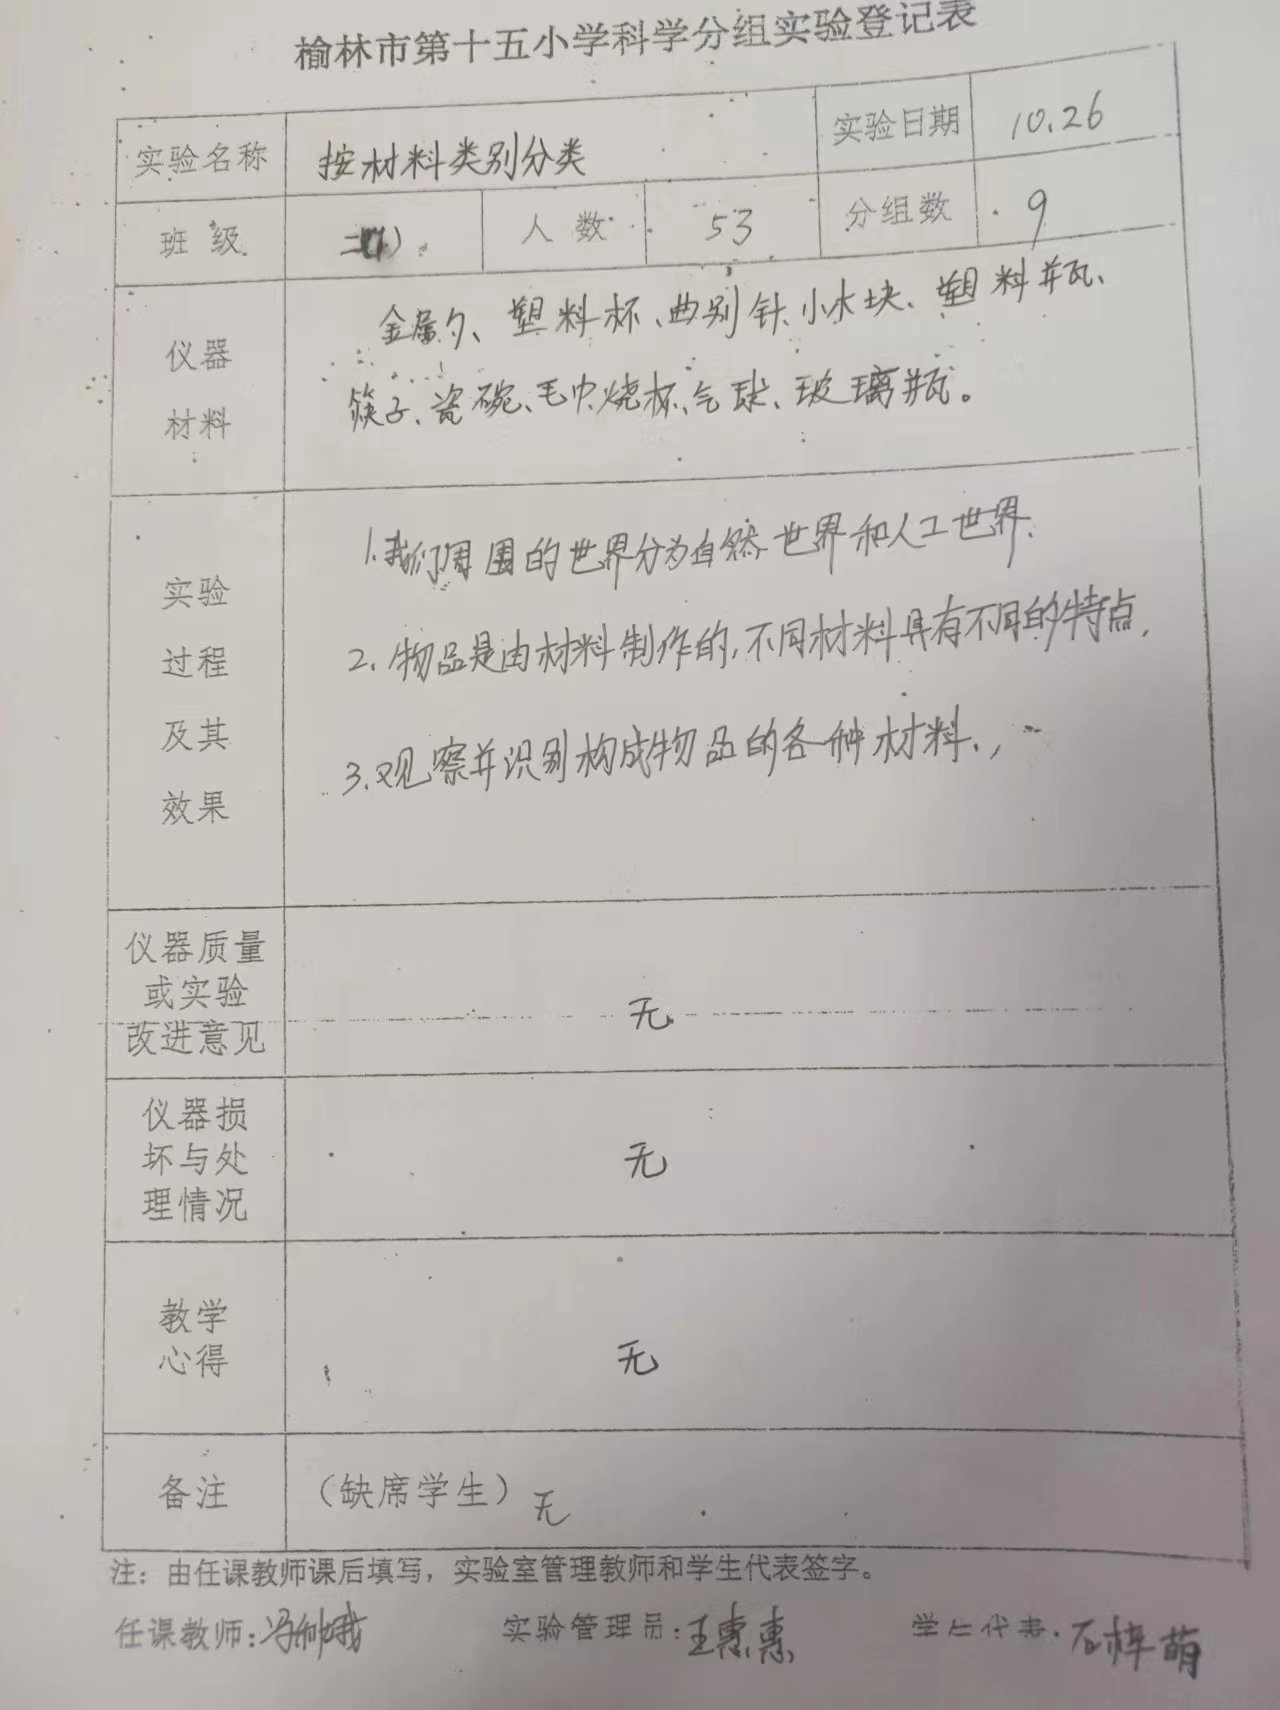 榆林市第十五小学科学分组实验登记表
实验名称 按材料类别分类 实验日期 10.26
班级 二 人数 53 分组数 9
仪器
材料
金属勺、塑料杯、曲别针、小木块、塑料瓶、
筷子、瓷碗、毛巾、烧杯、气球、玻璃瓶。
实验
过程
及其
效果
1.我们周围的世界分为自然世界和人工世界.
2.物品是由材料制作的,不同材料具有不同的特点.
3.观察并识别构成物品的各种材料.
仪器质量
或实验
改进意见
无
仪器损
坏与处
理情况
无
教学
心得
无
备注 (缺席学生) 无
注：由任课教师课后填写，实验室管理教师和学生代表签字。
任课教师: 实验管理员:王惠惠 学生代表: 石梓萌